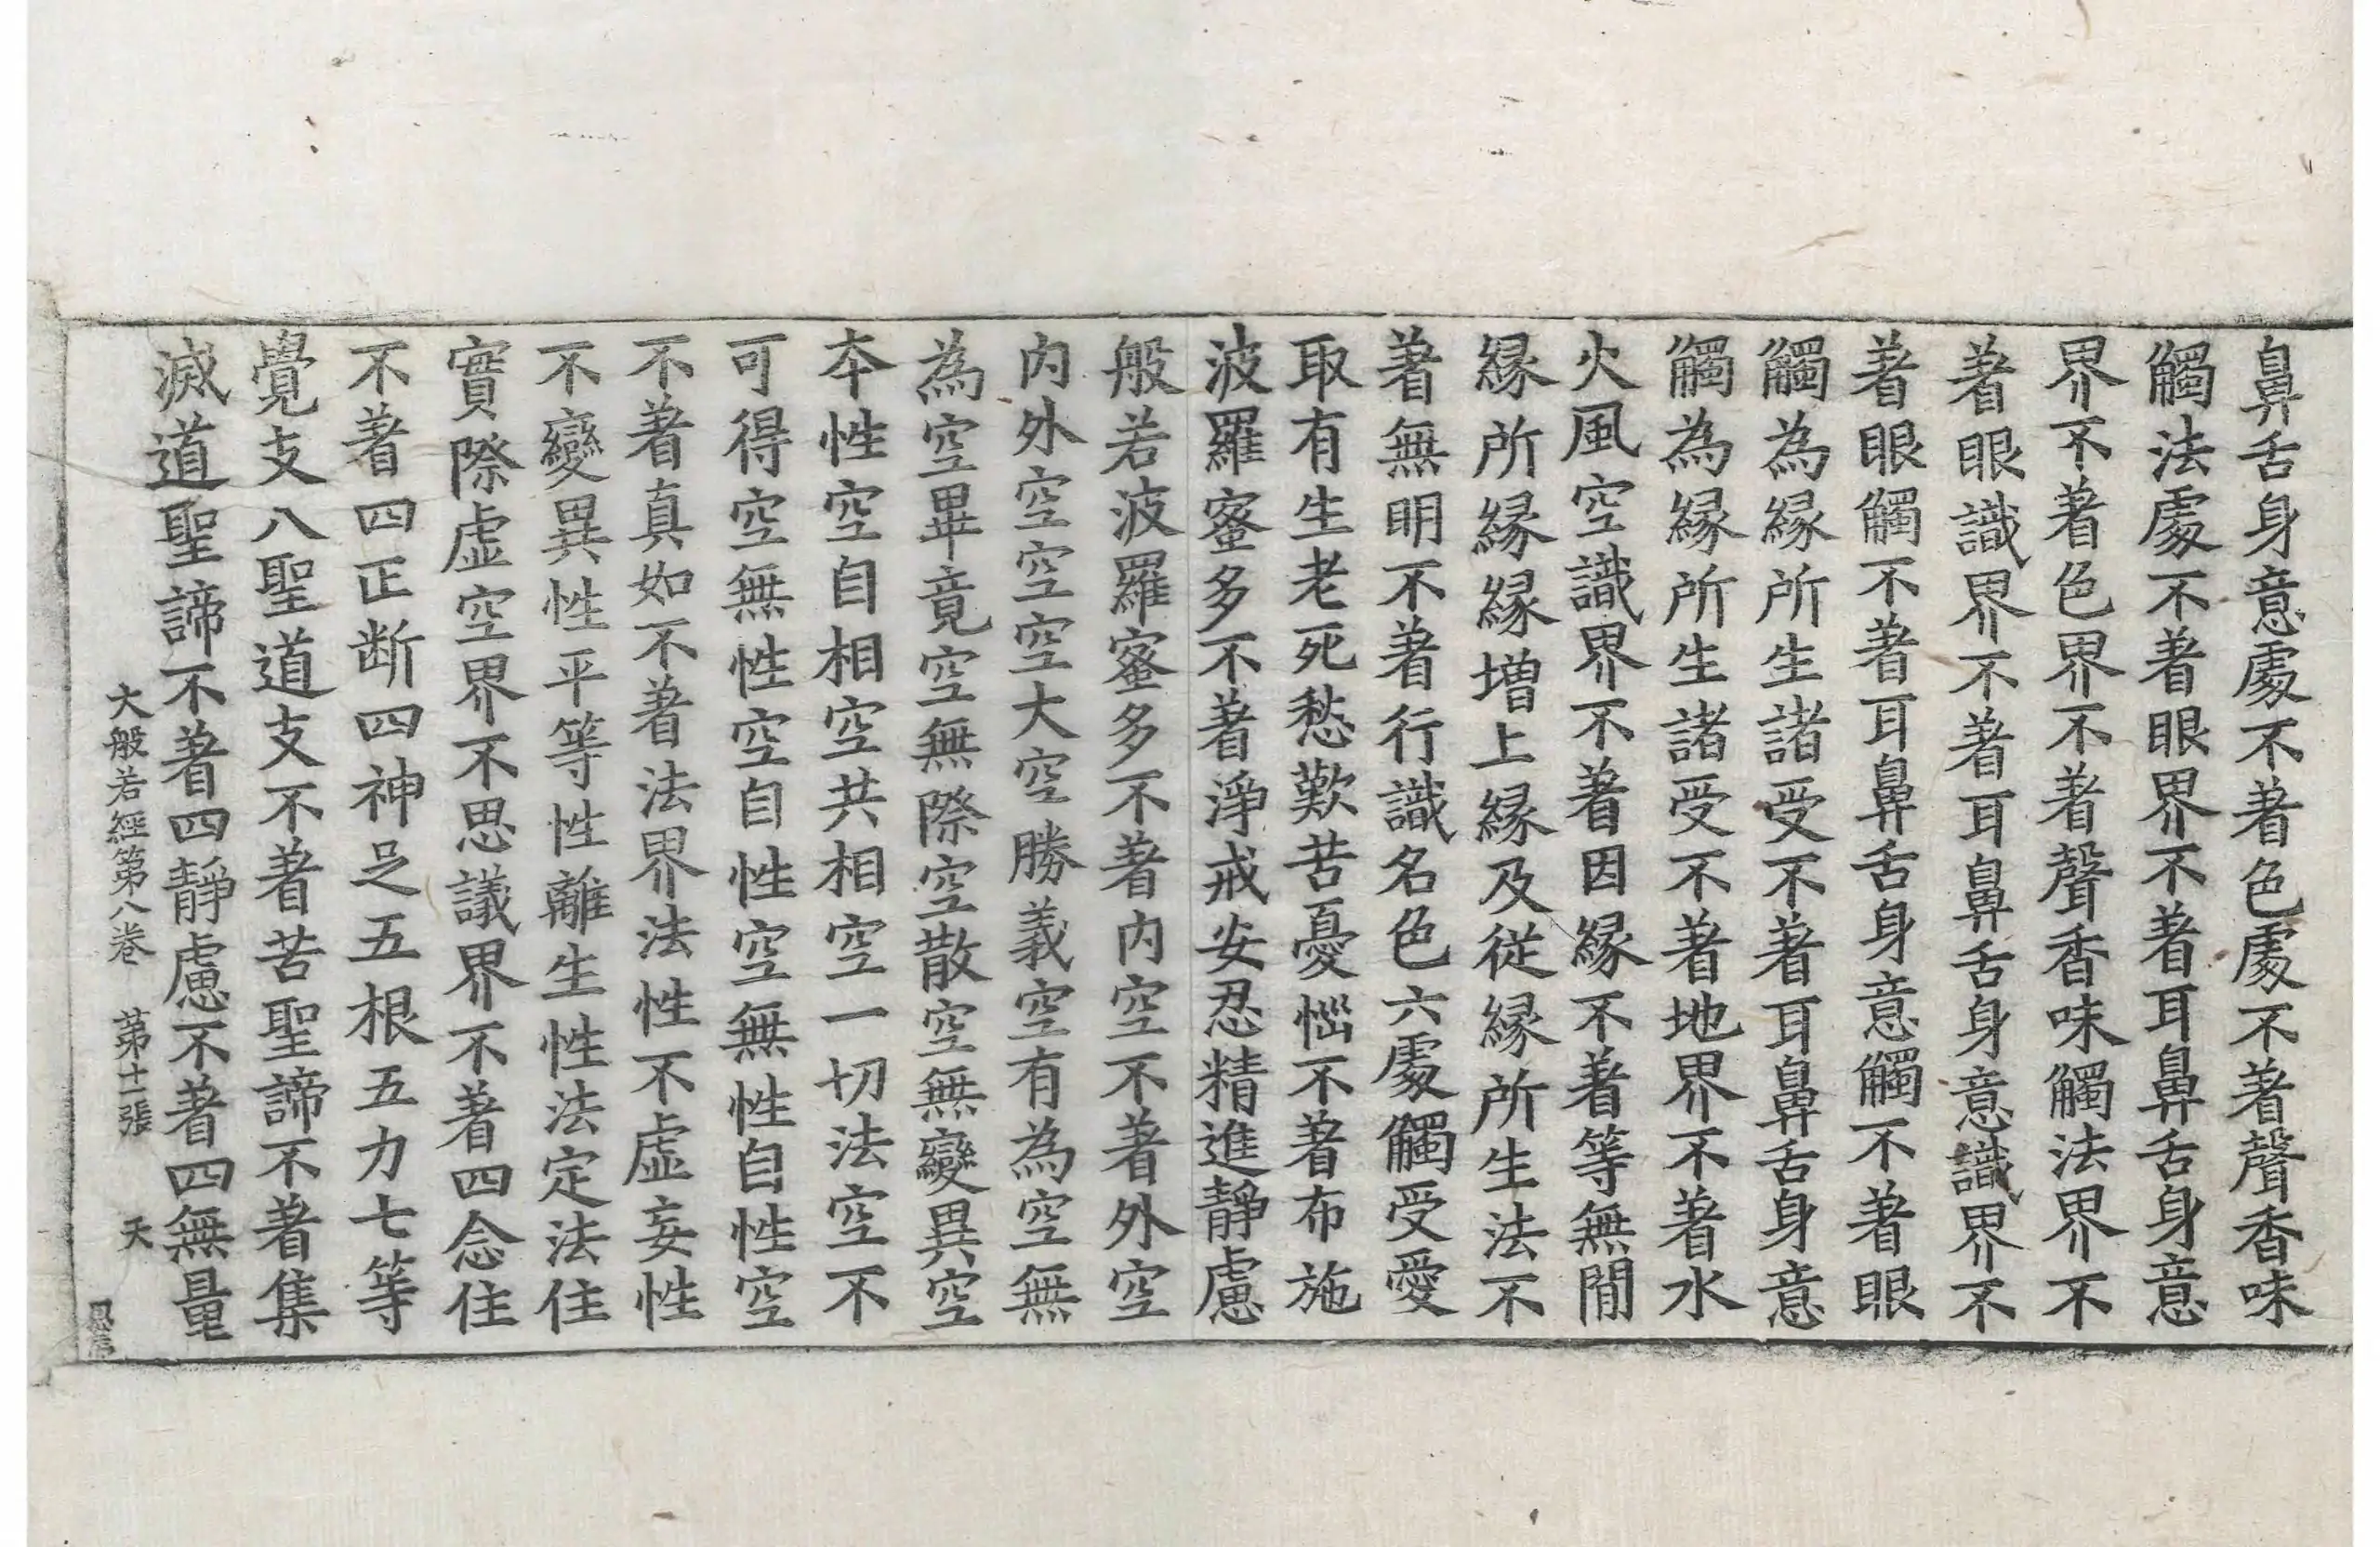 鼻舌身意處不著色處不著聲香味
觸法處不著眼界不著耳鼻舌身意
界不著色界不著聲香味觸法界不
著眼識界不著耳鼻舌身意識界不
著眼觸不著耳鼻舌身意觸不著眼
觸為緣所生諸受不著耳鼻舌身意
觸為緣所生諸受不著地界不著水
火風空識界不著因緣不著等無間
緣所緣緣增上緣及從緣所生法不
著無明不著行識名色六處觸受愛
取有生老死愁歎苦憂惱不著布施
波羅蜜多不著淨戒安忍精進靜慮
般若波羅蜜多不著內空不著外空
內外空空空大空勝義空有為空無
為空畢竟空無際空散空無變異空
本性空自相空共相空一切法空不
可得空無性空自性空無性自性空
不著真如不著法界法性不虛妄性
不變異性平等性離生性法定法住
實際虛空界不思議界不著四念住
不著四正断四神足五根五力七等
覺支八聖道支不著苦聖諦不著集
滅道聖諦不著四靜慮不著四無量
大般若經第八卷 第十二張 天